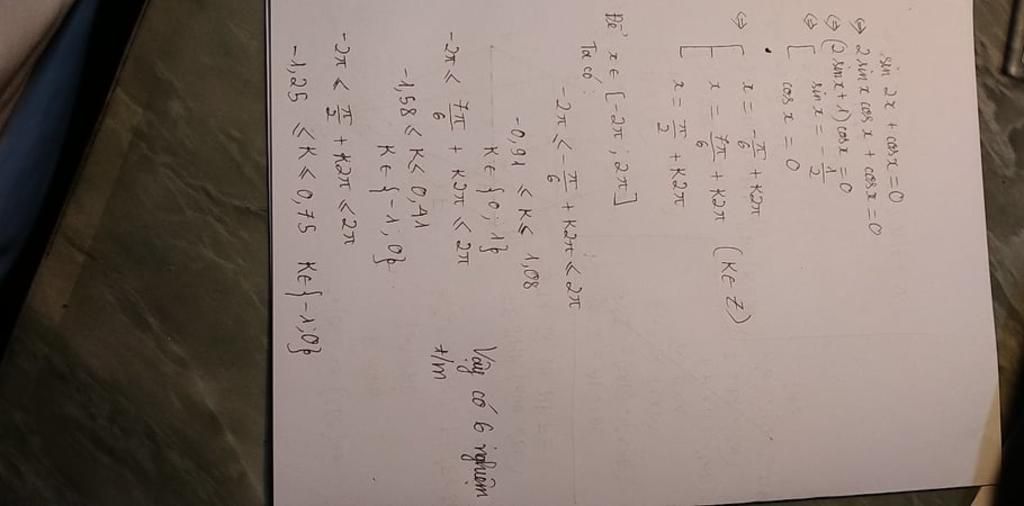 sin 2x + cos x = 0
⇔ 2 sin x cos x + cos x = 0
⇔ (2 sin x + 1) cos x = 0
⇔ [ sin x = -1/2
cos x = 0
⇔ [ x = -π/6 + K2π
x = 7π/6 + K2π (K ∈ Z)
x = π/2 + K2π
Để x ∈ [-2π; 2π]
Ta có:
-2π ≤ -π/6 + K2π ≤ 2π
-0,91 ≤ K ≤ 1,08
K ∈ {0; 1}
-2π ≤ 7π/6 + K2π ≤ 2π
-1,58 ≤ K ≤ 0,41
K ∈ {-1; 0}
-2π ≤ π/2 + K2π ≤ 2π
-1,25 ≤ K ≤ 0,75 K ∈ {-1; 0}
Vậy có 6 nghiệm
t/m